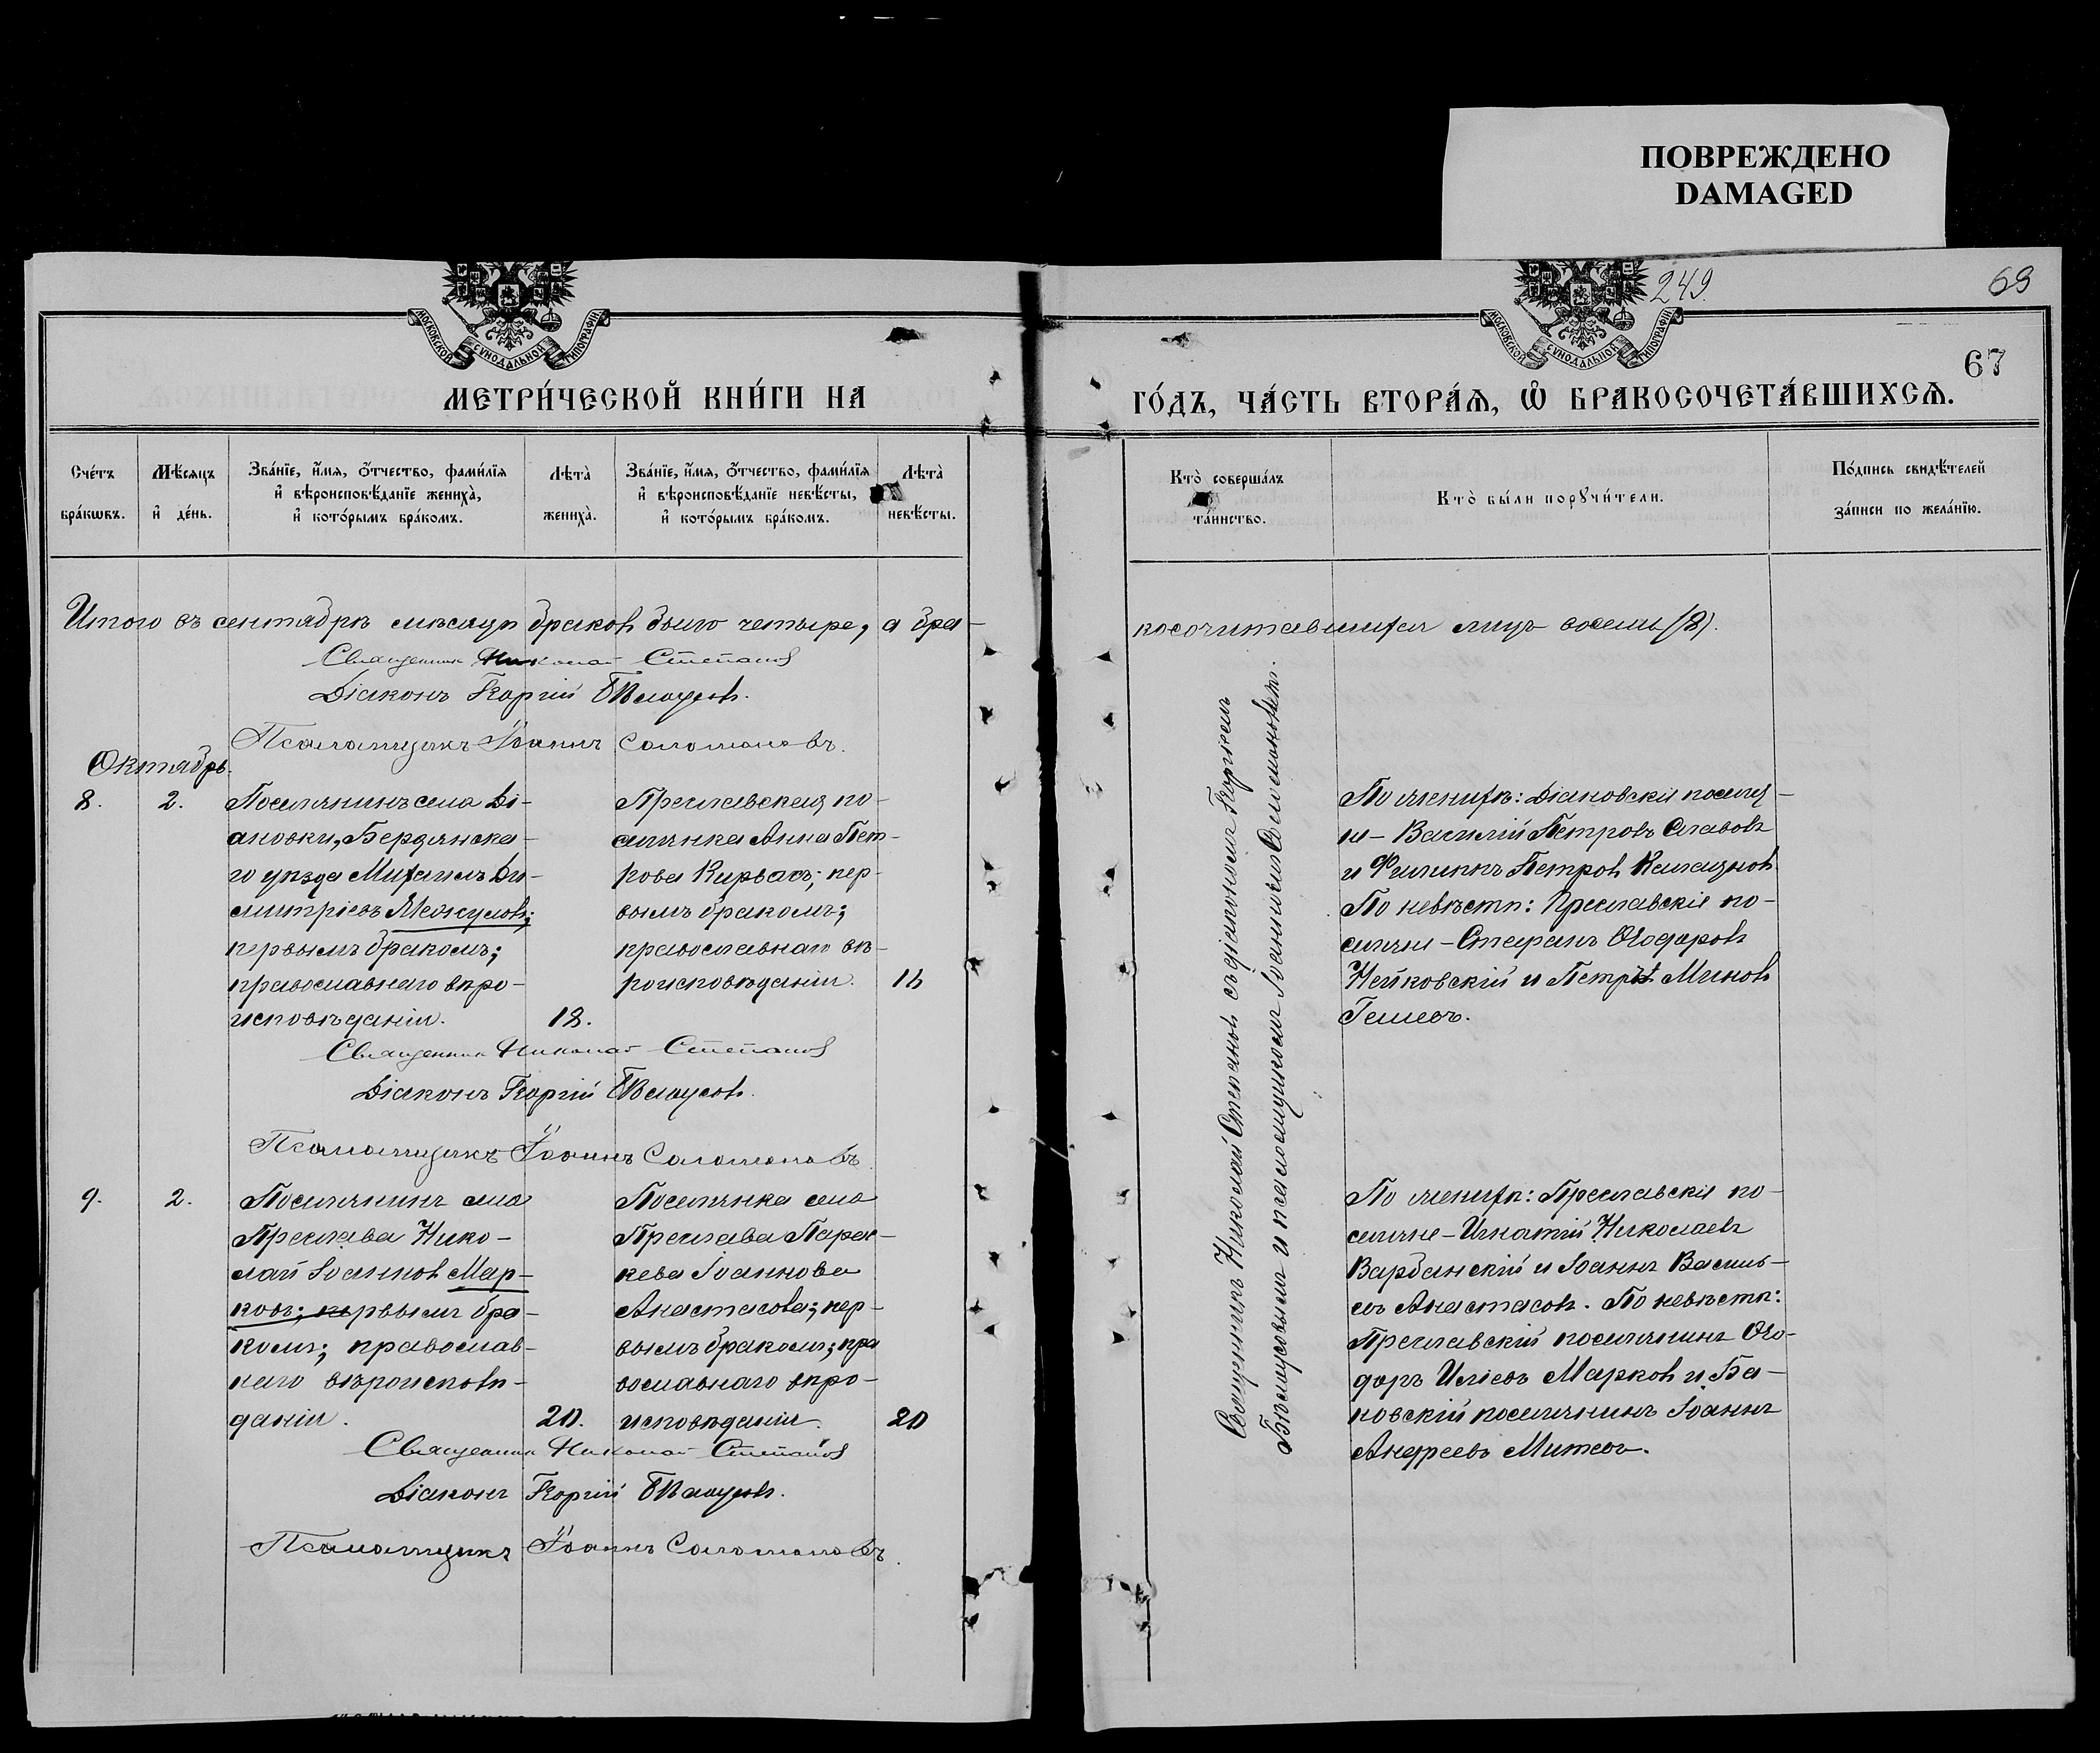 ПОВРЕЖДЕНО
DAMAGED
249.
69
67
МОСКОВСКОЙ СѴНОДАЛЬНОЙ ТИПОГРАФІИ
МОСКОВСКОЙ СѴНОДАЛЬНОЙ ТИПОГРАФІИ
МЕТРИ́ЧЕСКОЙ КНИ́ГИ НА
ГО́ДЪ, ЧА́СТЬ ВТОРА́Ѧ, Ѡ҆ БРАКОСОЧЕТА́ВШИХСѦ.
Сче́тъ
бра́кѡвъ.
Мѣ́сяцъ
и҆ де́нь.
Зва́нїе, и҆́мѧ, о҆́тчество, фами́лїѧ
и҆ вѣроисповѣ́данїе жениха̀,
и҆ кото́рымъ бра́комъ.
Лѣта̀
жениха̀.
Зва́нїе, и҆́мѧ, о҆́тчество, фами́лїѧ
и҆ вѣроисповѣ́данїе невѣ́сты,
и҆ кото́рымъ бра́комъ.
Лѣта̀
невѣ́сты.
Кто̀ соверша́лъ
та́инство.
Кто̀ бы́ли порꙋчи́тели.
По́дпись свидѣ́телей
за́писи по жела́нїю.
Итого въ сентябрѣ мѣсяцѣ браковъ было четыре, а бра-
косочитавшихся лицъ восемь (8).
Священникъ Николай Степановъ
Діаконъ Георгій Бѣлоусовъ.
Псаломщикъ Іоаннъ Соломоновъ.
Октябрь.
8.
2.
Поселянинъ села Ді-
ановки, Бердянска-
го уѣзда Михаилъ Ди-
митріевъ
первымъ бракомъ;
православнаго вѣро-
исповѣданія.
18.
Преславская по-
селянка Анна Пет-
рова пер-
вымъ бракомъ;
православнаго вѣ-
роисповѣданія.
По женихѣ: Діановскіе поселя-
не - Василій Петровъ Славовъ
и Филиппъ Петровъ
По невѣстѣ: Преславскіе по-
селяне - Стефанъ Ѳеодоровъ
Нейковскій и Петръ Миновъ
Гешевъ.
Священникъ Николай Степановъ
Діаконъ Георгій Бѣлоусовъ.
Псаломщикъ Іоаннъ Соломоновъ.
Священникъ Николай Степановъ съ діакономъ Георгіемъ
Бѣлоусовымъ и псаломщикомъ Іоанномъ Соломоновымъ.
9.
2.
Поселянинъ села
Преслава Нико-
лай Іоанновъ Мар-
ковъ; первымъ бра-
комъ; православ-
наго вѣроисповѣ-
данія.
20.
Поселянка села
Преслава Парас-
кева Іоаннова
Анастасова; пер-
вымъ бракомъ; пра
вославнаго вѣро-
исповѣданія.
20
По женихѣ: Преславскіе по-
селяне - Игнатій Николаевъ
Варбанскій и Іоаннъ Василь-
евъ Анастасовъ. По невѣстѣ:
Преславскій поселянинъ Ѳео-
доръ Иліевъ Марковъ и Ба-
новскій поселянинъ Іоаннъ
Андреевъ Митевъ.
Священникъ Николай Степановъ
Діаконъ Георгій Бѣлоусовъ.
Псаломщикъ Іоаннъ Соломоновъ.